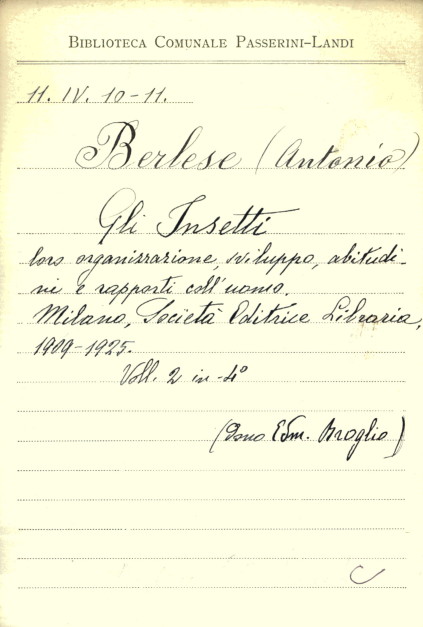 BIBLIOTECA COMUNALE PASSERINI-LANDI
11. IV. 10-11.
Berlese (Antonio)
Gli Insetti
loro organizzazione, sviluppo, abitudi-
ni e rapporti coll'uomo.
Milano, Società Editrice Libraria,
1909-1925.
Voll. 2 in-4°
(Dono Edm. Broglio)